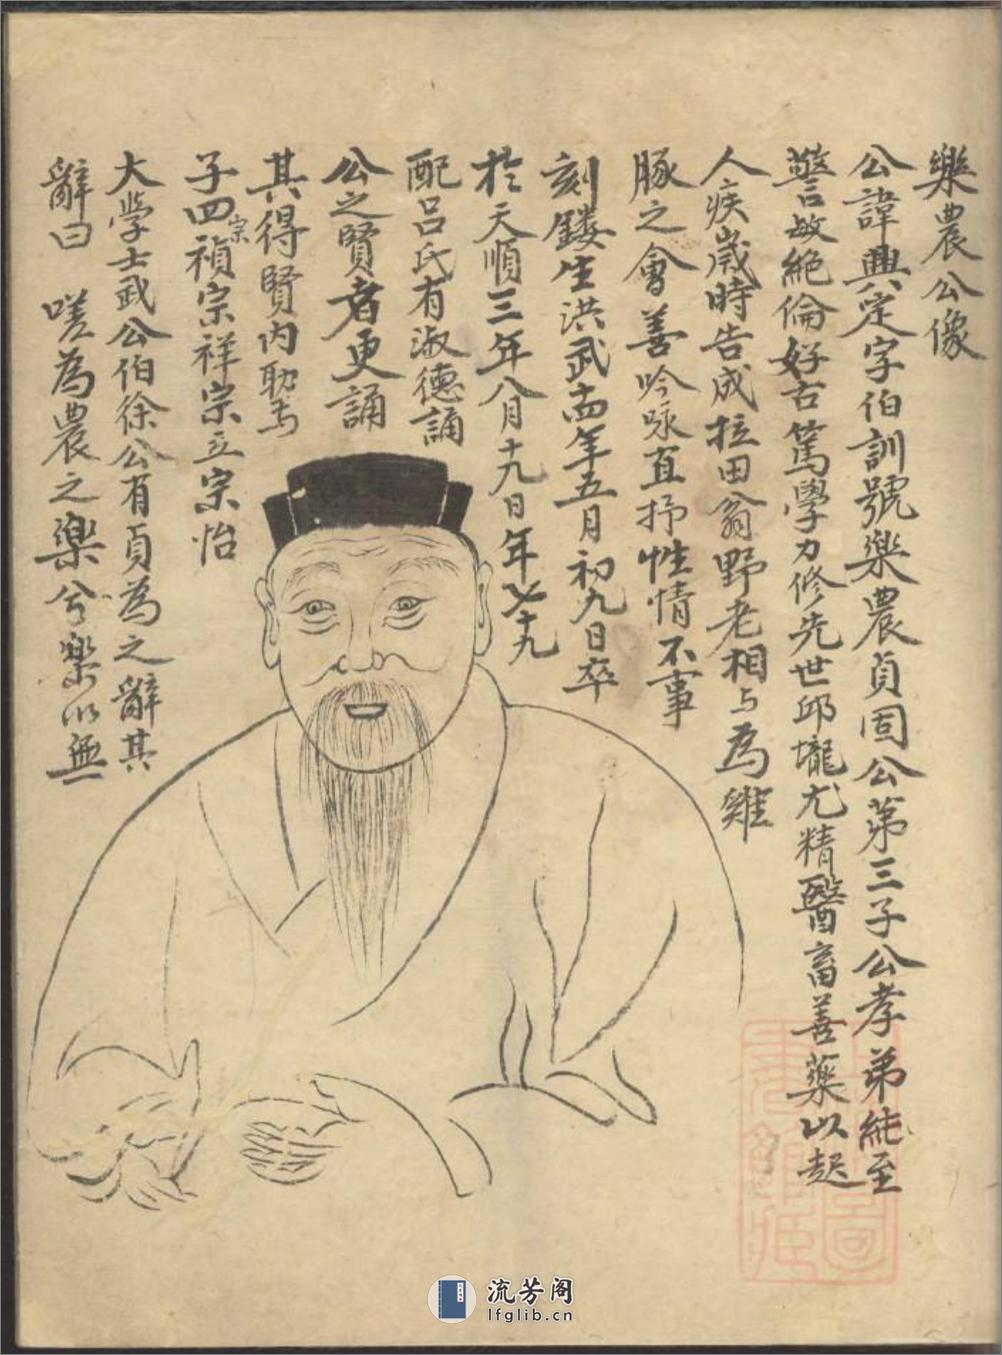 樂農公像
公諱興定字伯訓號樂農貞固公第三子公孝弟純至
警敏絕倫好古篤學力修先世邱壠尤精醫畜善藥以起
人疾歲時告成拉田翁野老相与為雞
豚之會善吟咏直抒性情不事
刻鏤生洪武十四年五月初九日卒
於天順三年八月十九日年七十九
配呂氏有淑德誦
公之賢者更誦
其得賢内助焉
子四宗禎宗祥宗立宗怡
大學士武公伯徐公有貞為之辭其
辭曰 嗟為農之樂兮樂以無
流芳阁
lfglib.cn